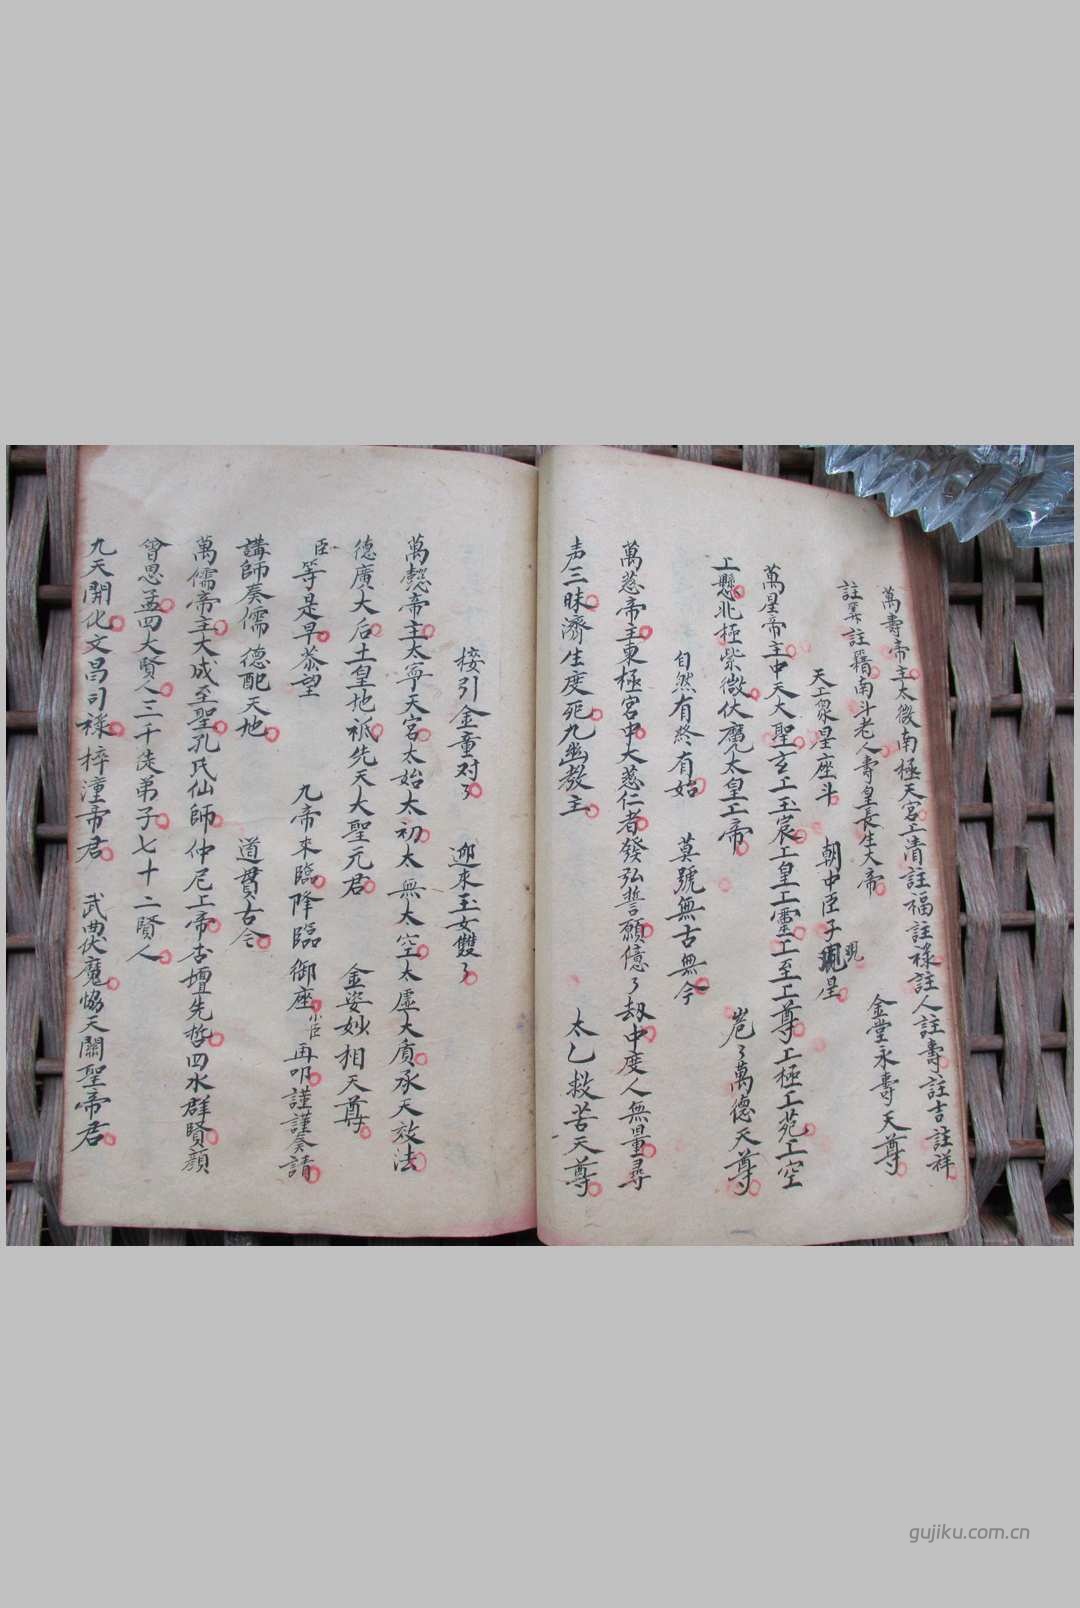 萬壽帝主太微南極天宮上清註福註祿註人註壽註吉註祥
註筭註籍南斗老人壽皇長生大帝 金堂永壽天尊
天工衆星座斗 朝中臣子現星
現
萬星帝主中天大聖玄工玉宸工皇工靈工至工尊工極工苑工空
工懸北極紫微伏魔太皇工帝 巍々萬德天尊
自然有終有始 莫號無古無今
萬慈帝主東極宮中大慈仁者發弘誓願億々刼中度人無量尋
声三昧濟生度死九幽教主 太乙救苦天尊
接引金童对々 迎來玉女雙々
萬懿帝主太寧天宮太始太初太無太空太虛大质承天效法
德廣大后土皇地祇先天大聖元君 金姿妙相天尊
臣等是早恭望 九帝來臨降臨御座小臣再叩謹謹奏請
講師奏儒 德配天地 道貫古今
萬儒帝主大成至聖孔氏仙師仲尼上帝杏壇先哲四水群賢顔
曾思孟四大賢人三千徒弟子七十二賢人
九天開化文昌司祿梓潼帝君 武曲伏魔協天關聖帝君
gujiku.com.cn